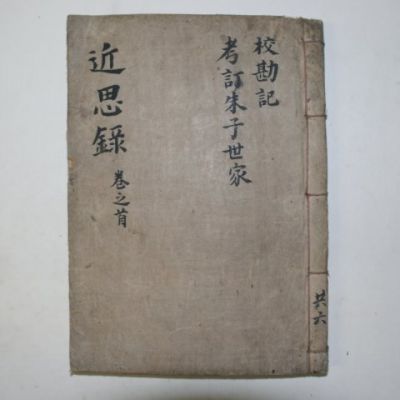 校勘記
考訂朱子世家
近思錄
卷之首
共六